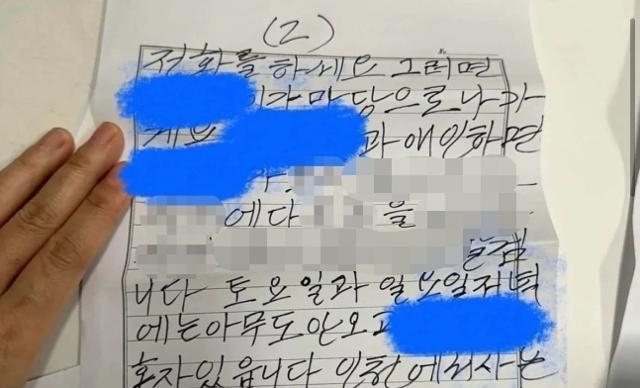 (2)
전화를 하세요 그러면
이가 마당으로 나가
게요 과 애인하면
에다 을
니다 토요일과 일요일저녁
에는 아무도 안오고
혼자 있읍니다 인천에서 사는